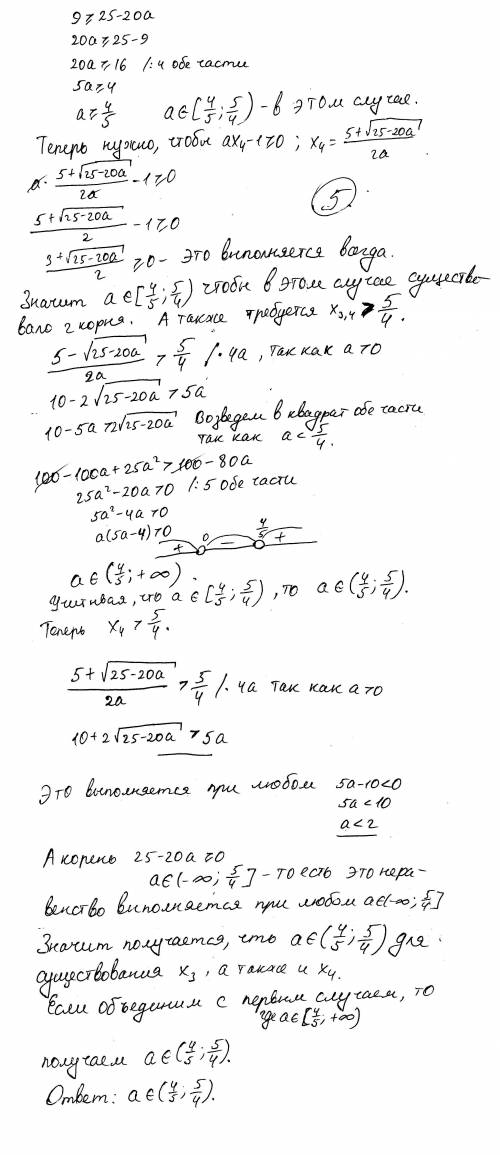 9 ⩾ 25-20a
20a ⩾ 25-9
20a ⩾ 16 /:4 обе части
5a ⩾ 4
a ⩾ 4/5   a∈[4/5; 5/4) - в этом случае.
Теперь нужно, чтобы ax₄-1⩾0 ; x₄ = (5+√(25-20a))/(2a)
a · (5+√(25-20a))/(2a) - 1⩾0
(5)
(5+√(25-20a))/2 - 1⩾0
(3+√(25-20a))/2 ⩾0 - это выполняется всегда.
Значит a∈[4/5; 5/4) чтобы в этом случае существо-
вало 2 корня. А также требуется x₃,₄ > 5/4.
(5-√(25-20a))/(2a) > 5/4 /· 4a , так как a>0
10-2√(25-20a) > 5a
10-5a > 2√(25-20a) Возведем в квадрат обе части
так как a < 5/4.
100-100a+25a² > 100-80a
25a²-20a>0 /:5 обе части
5a²-4a>0
a(5a-4)>0   + 0 - 4/5 +
a∈(4/5; +∞).
Учитывая, что a∈[4/5; 5/4), то a∈(4/5; 5/4).
Теперь x₄ > 5/4.
(5+√(25-20a))/(2a) > 5/4 /· 4a так как a>0
10+2√(25-20a) > 5a
Это выполняется при любом 5a-10<0
5a<10
a<2
А корень 25-20a⩾0
a∈(-∞; 5/4] - то есть это нера-
венство выполняется при любом a∈(-∞; 5/4]
Значит получается, что a∈(4/5; 5/4) для
существования x₃, а также и x₄.
Если объединим с первым случаем, то
где a∈[4/5; +∞)
получаем a∈(4/5; 5/4).
Ответ: a∈(4/5; 5/4).